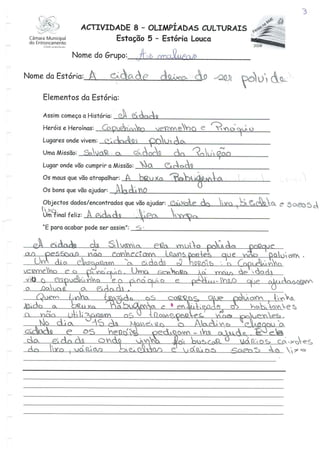 3
ACTIVIDADE 8 – OLIMPÍADAS CULTURAIS
Câmara Municipal
do Entroncamento
Estação 5 – Estória Louca
2008
Nome do Grupo: As malucas
Nome da Estória: A cidade deixa de ser poluída
Elementos da Estória:
Assim começa a História: A cidade
Heróis e Heroínas: Capuchinho vermelho e Pinóquio
Lugares onde vivem: cidades poluída
Uma Missão: Salvar a cidade da Poluição
Lugar onde vão cumprir a Missão: Na Cidade
Os maus que vão atrapalhar: A bruxa Rabugenta
Os bons que vão ajudar: Aladino
Objectos dados/encontrados que vão ajudar: caixote do lixo, bicicleta e sacos d
lixo
Um Final feliz: A cidade fica limpa
"E para acabar pode ser assim":
A cidade da Silvania era muito poluída porque
as pessoas não conheciam transportes que não poluiam.
Um dia chegaram à cidade 2 heróis: o Capuchinho
vermelho e o pinóquio. Uma senhora já mais de idade
viu o capuchinho e o pinóquio e pediu-lhes que ajudassem
a salvar a cidade.
Quem tinha os carros que poluiam, tinha
sido a bruxa Rabugenta e os habitantes
a não utilizarem os transportes não poluentes.
No dia 15 de Março o Aladino chegou à
cidade e os heróis pediram-lhe ajuda. Ele
da cidade onde vinha foi buscar vários caixotes
do lixo, várias bicicletas e vários sacos do lixo